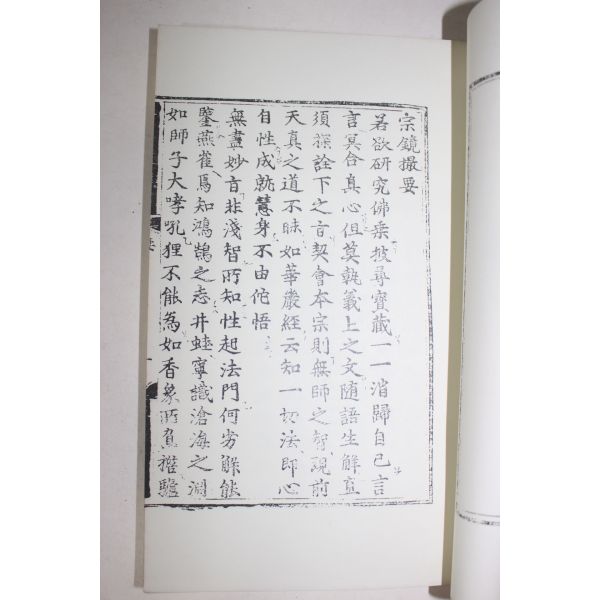 宗鏡撮要
若欲研究佛乘披尋寶藏一一消歸自己言
言冥合眞心但莫執義上之文隨語生解直
須探詮下之旨契會本宗則無師之智現前
天眞之道不昧如華嚴經云知一切法即心
自性成就慧身不由佗悟
無盡妙音非淺智所知性起法門何劣解能
鑒燕雀焉知鴻鵠之志井蛙寧識滄海之淵
如師子大哮吼狸不能爲如香象所負擔驢